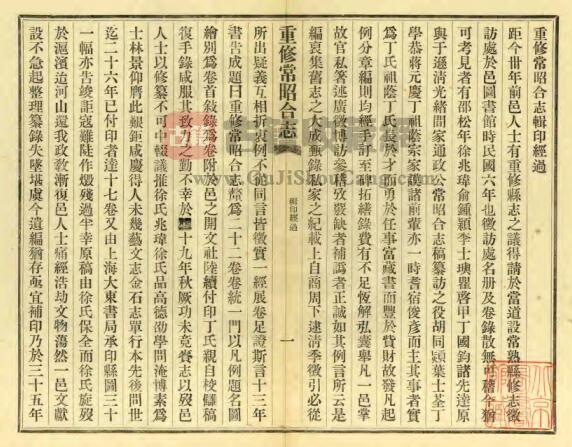 重修常昭合志輯印經過
距今卅年前邑人士有重修縣志之議得請於當道設常熟縣修志徵
訪處於邑圖書館時民國六年也徵訪處名册及卷錄散無可稽今猶
可考見者有邵松年徐兆瑋俞鍾穎李士瓚瞿啓甲丁國鈞諸先達原
與于遜清光緒間家通政公常昭合志稿纂訪之役胡同穎葉士荃丁
學恭蔣元慶丁祖蔭宗家漢諸前輩亦一時耆宿俊彥而主其事者實
為丁氏祖蔭丁氏長於才而勇於任事富藏書而豐於貲財故發凡起
例分章編則均經手訂至碑拓繕錄費有不足恆解弘囊舉凡一邑掌
故官私箸述廣徵博訪參稽攷覈缺者補譌者正誠如其例言所云是
編裒集舊志之大成甄錄私家之紀載上自商周下逮清季徵引必從
重修常昭合志
輯印經過
一
所出疑義互相折衷例不苟同言皆徵實一經展卷足證斯言十三年
書告成題曰重修常昭合志釐為二十二卷卷統一門以凡例題名圖
繪別為卷首敘錄為卷附邑之開文社陸續付印丁氏親自校讎稿
復手錄咸服其致力之勤不幸於十九年秋厥功未竟賫志以歿邑
人士以修纂不可中輟議推徐氏兆瑋徐氏品高德劭學問淹博素為
士林景仰肩此艱鉅咸慶得人未幾藝文志金石志單行本先後問世
迄二十六年已付印者達十七卷又由上海大東書局承印縣圖三十
一幅亦告竣詎寇難陡作燬殘過半幸原稿由徐氏保全而徐氏旋歿
於滬濱迨河山還我政敎漸復邑人士痛經浩劫文物蕩然一邑文獻
設不急起整理纂錄失墜堪虞今遺編猶存亟宜補印乃於三十五年